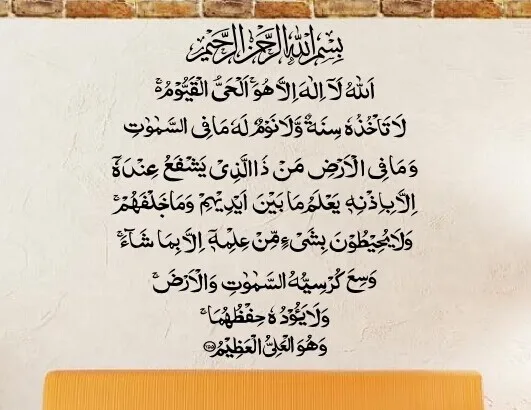 بِسْمِ اللهِ الرَّحْمٰنِ الرَّحِيْمِ
اَللهُ لَآ اِلٰهَ اِلَّا هُوَۚ اَلْحَىُّ الْقَيُّوْمُ ەۚ
لَا تَاْخُذُهٗ سِنَةٌ وَّلَا نَوْمٌؕ لَهٗ مَا فِى السَّمٰوٰتِ
وَمَا فِى الْاَرْضِؕ مَنْ ذَا الَّذِىْ يَشْفَعُ عِنْدَهٗۤ
اِلَّا بِاِذْنِهٖؕ يَعْلَمُ مَا بَيْنَ اَيْدِيْهِمْ وَمَا خَلْفَهُمْۚ
وَلَا يُحِيْطُوْنَ بِشَىْءٍ مِّنْ عِلْمِهٖۤ اِلَّا بِمَا شَآءَۚ
وَسِعَ كُرْسِيُّهُ السَّمٰوٰتِ وَالْاَرْضَۚ
وَلَا يَــُٔوْدُهٗ حِفْظُهُمَاۚ
وَهُوَ الْعَلِىُّ الْعَظِيْمُ ﴿۲۵۵﴾